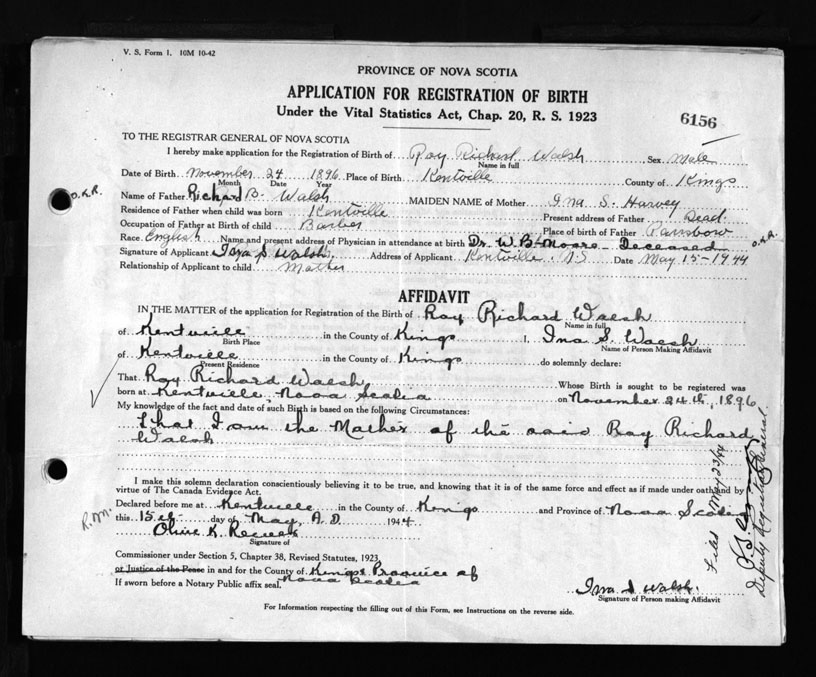 V. S. Form 1. 10M 10-42
PROVINCE OF NOVA SCOTIA
APPLICATION FOR REGISTRATION OF BIRTH
Under the Vital Statistics Act, Chap. 20, R. S. 1923
6156
TO THE REGISTRAR GENERAL OF NOVA SCOTIA
I hereby make application for the Registration of Birth of Roy Richard Walsh Sex Male
Name in full
Date of Birth November 24 1896 Place of Birth Kentville County of Kings
Month Date Year
Name of Father Richard B. Walsh MAIDEN NAME of Mother Ina S. Harvey
Residence of Father when child was born Kentville Present address of Father Dead
Occupation of Father at Birth of child Barber Place of birth of Father
Race English Name and present address of Physician in attendance at birth Dr. W. B. Moore - Deceased
Signature of Applicant Ina S Walsh Address of Applicant Kentville N.S Date May 15-1944
Relationship of Applicant to child Mother
AFFIDAVIT
IN THE MATTER of the application for Registration of the Birth of Roy Richard Walsh
Name in full
of Kentville in the County of Kings I, Ina S. Walsh
Birth Place Name of Person Making Affidavit
of Kentville in the County of Kings do solemnly declare:
Present Residence
That Roy Richard Walsh Whose Birth is sought to be registered was
born at Kentville, Nova Scotia on November 24th, 1896
My knowledge of the fact and date of such Birth is based on the following Circumstances:
That I am the Mother of the said Roy Richard
Walsh
I make this solemn declaration conscientiously believing it to be true, and knowing that it is of the same force and effect as if made under oath and by
virtue of The Canada Evidence Act.
Declared before me at Kentville in the County of Kings and Province of Nova Scotia
this 15th day of May, A.D. 1944.
Signature of
Commissioner under Section 5, Chapter 38, Revised Statutes, 1923,
or Justice of the Peace in and for the County of Kings Province of
Nova Scotia
If sworn before a Notary Public affix seal.
Ina S Walsh.
Signature of Person making Affidavit
For Information respecting the filling out of this Form, see Instructions on the reverse side.
Filed May 23/44
Deputy Registrar General.